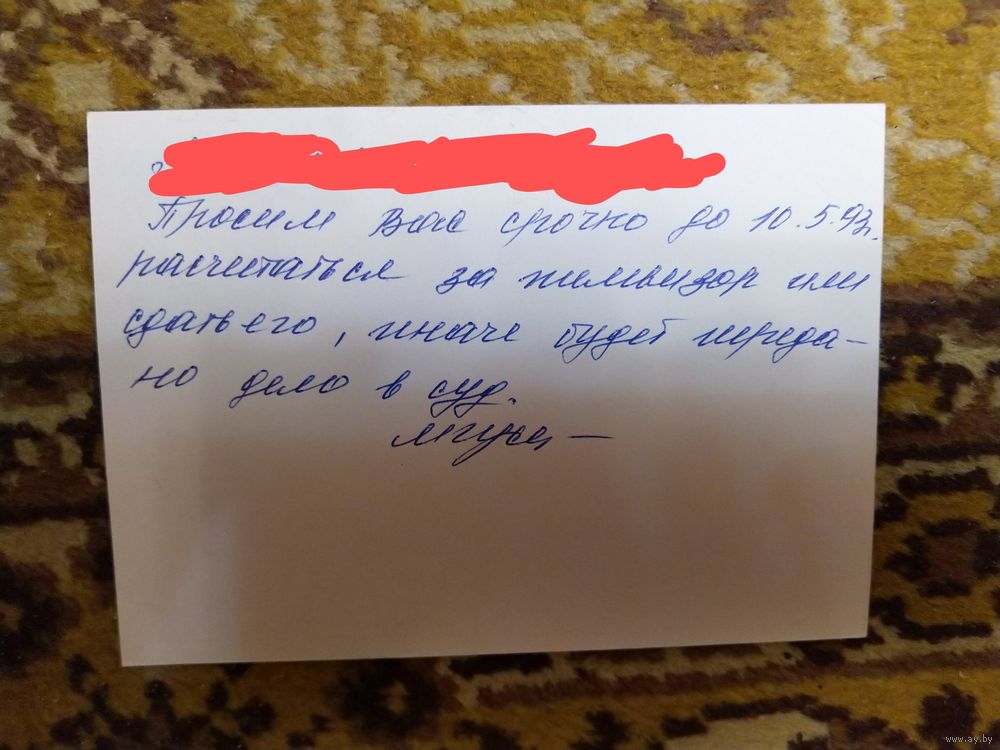 Просим Вас срочно до 10.5.93г.
расчитаться за телевизор или
сдать его, иначе будет переда-
но дело в суд.
www.ay.by